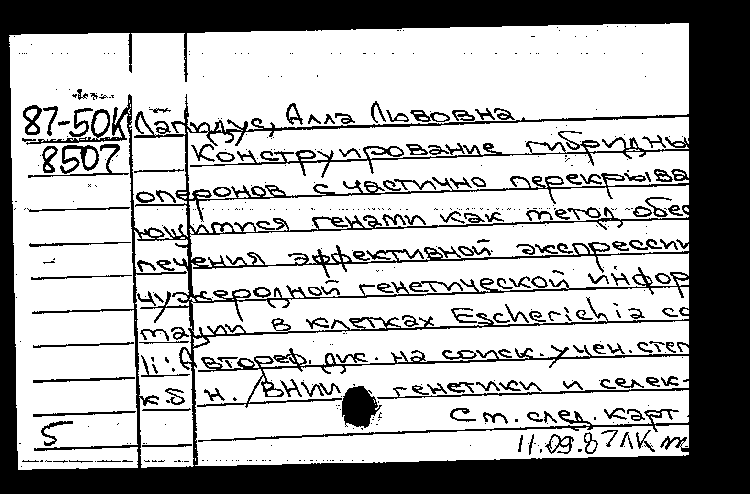 87-50К Лапидус, Алла Львовна.
8507 Конструирование гибридны
оперонов с частично перекрыва
ющимися генами как метод обес
печения эффективной экспрессии
чужеродной генетической инфор
мации в клетках Escherichia co
li: Автореф. дис. на соиск. учен. степ
к б н. /ВНИИ генетики и селек-
См. след. карт.
5
11.09.87 ЛК